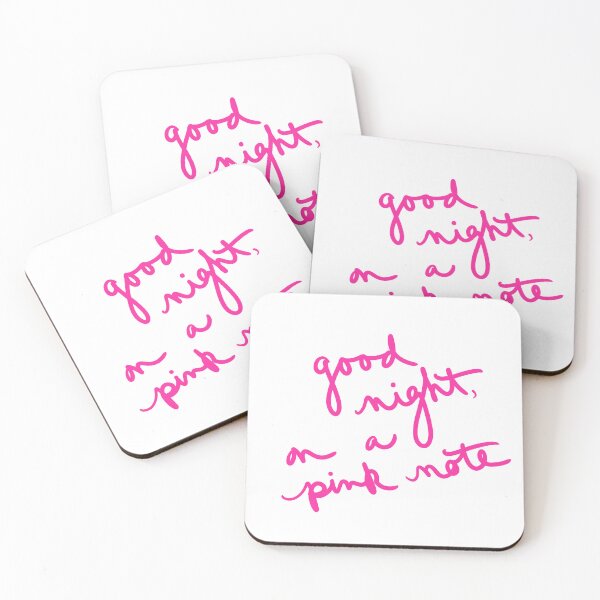 good
night,
good
night,
on a
pink note
good
night,
on a
pink
good
night,
on a
pink note